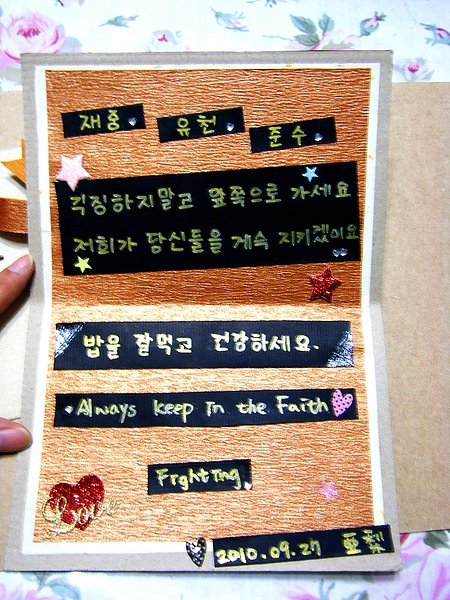 재중 유천 준수
걱정하지말고 앞쪽으로 가세요
저희가 당신들을 계속 지키겠어요
밥을 잘먹고 건강하세요.
Always keep in the Faith
Frghting
Love
2010.09.27